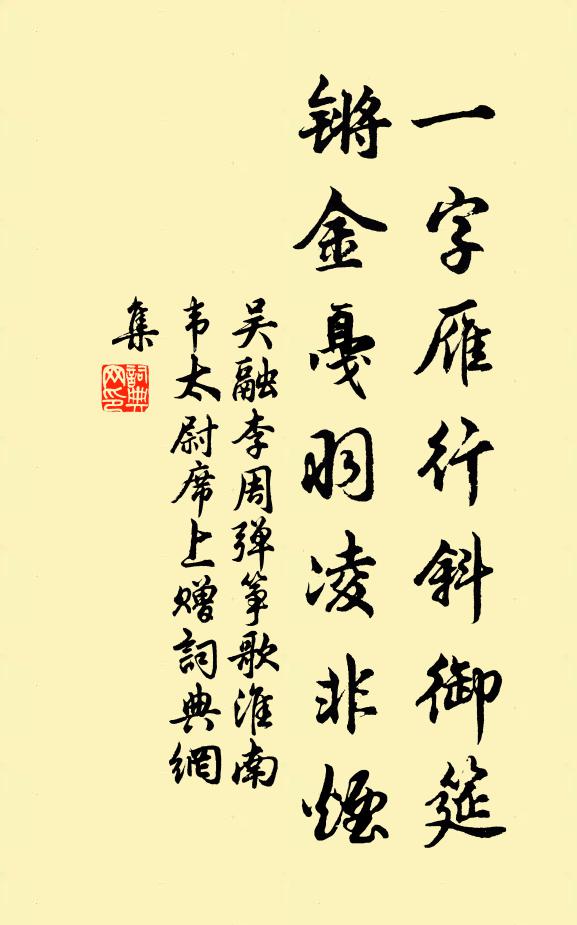 一字雁行斜御筵
锵金戛羽凌非煙
吴融李周弹筝歌淮南
韦太尉席上赠詞典網
集
詞典
网印